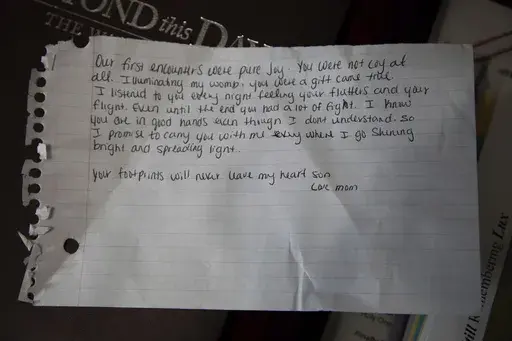 OND this DA
THE W
Our first encounters were pure joy. You were not coy at
all. Illuminating my womb, you were a gift came true.
I listened to you every night feeling your flutters and your
flight. Even until the end you had a lot of fight. I know
you are in good hands even though I dont understand. So
I promise to carry you with me every where I go Shining
bright and spreading light.
your footprints will never leave my heart son
Love mom
membering Lux